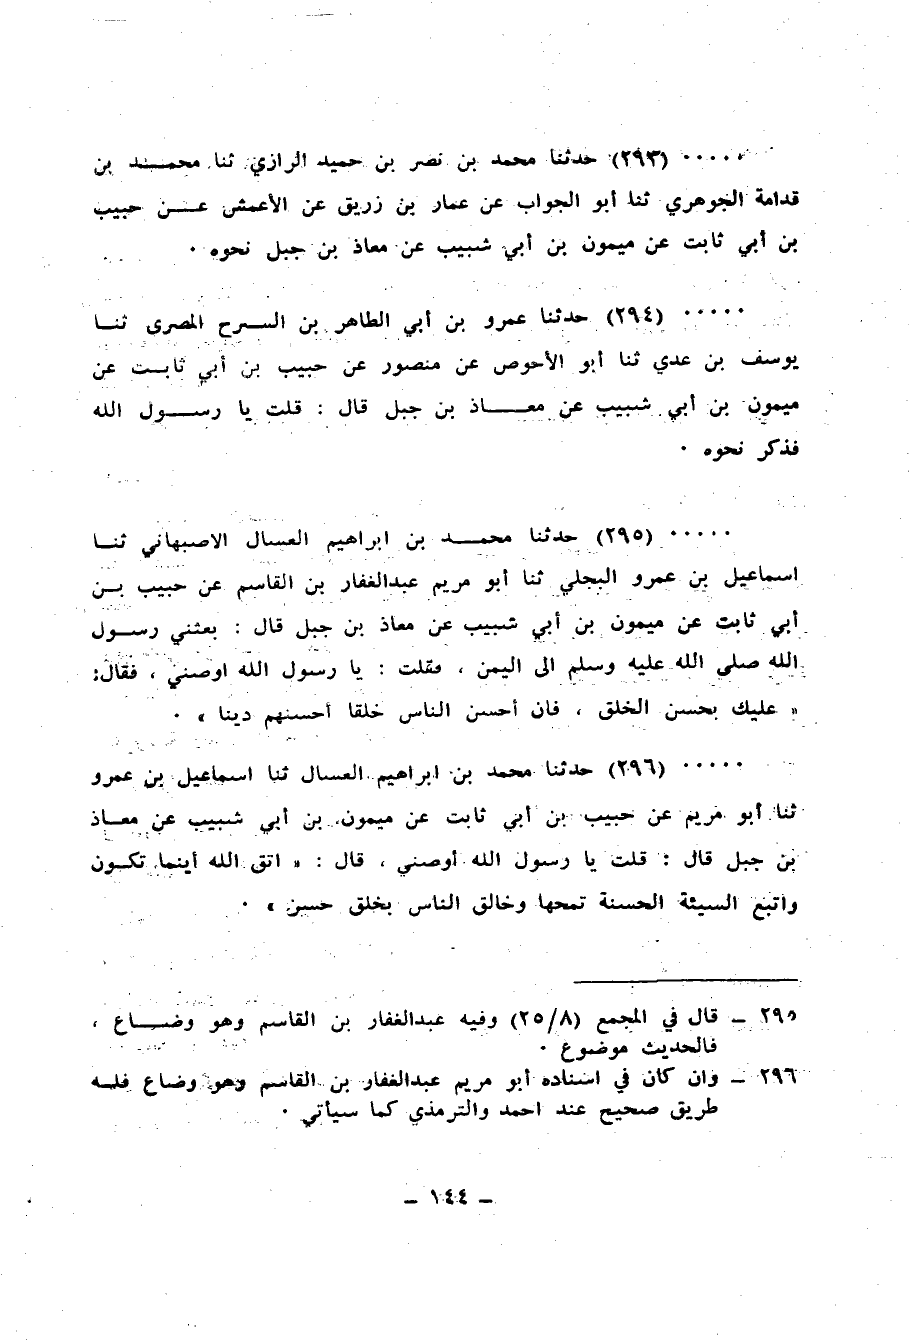 ٠٠٠٠٠ (٢٩٣) حدثنا محمد بن نصر بن حميد الرازي ثنا محمـــد بن
قدامة الجوهري ثنا أبو الجواب عن عمار بن زريق عن الأعمش عــن حبيب
بن أبي ثابت عن ميمون بن أبي شبيب عن معاذ بن جبل نحوه ٠
٠٠٠٠٠ (٢٩٤) حدثنا عمرو بن أبي الطاهر بن الســرح المصرى ثنــا
يوسف بن عدي ثنا أبو الأحوص عن منصور عن حبيب بن أبي ثابــت عن
ميمون بن أبي شبيب عن معــــاذ بن جبل قال : قلت يا رســــول الله
فذكر نحوه ٠
٠٠٠٠٠ (٢٩٥) حدثنا محمــــد بن ابراهيم العسال الاصبهاني ثنــا
اسماعيل بن عمرو البجلي ثنا أبو مريم عبدالغفار بن القاسم عن حبيب بــن
أبي ثابت عن ميمون بن أبي شبيب عن معاذ بن جبل قال : بعثني رســول
الله صلى الله عليه وسلم الى اليمن ، فقلت : يا رسول الله اوصني ، فقال:
« عليك بحسن الخلق ، فان أحسن الناس خلقا أحسنهم دينا » ٠
٠٠٠٠٠ (٢٩٦) حدثنا محمد بن ابراهيم العسال ثنا اسماعيل بن عمرو
ثنا أبو مريم عن حبيب بن أبي ثابت عن ميمون بن أبي شبيب عن معــاذ
بن جبل قال : قلت يا رسول الله أوصني ، قال : « اتق الله أينما تكــون
واتبع السيئة الحسنة تمحها وخالق الناس بخلق حسن » ٠
٢٩٥ ــ قال في المجمع (٢٥/٨) وفيه عبدالغفار بن القاسم وهو وضــــاع ،
فالحديث موضوع ٠
٢٩٦ ــ وان كان في اسناده أبو مريم عبدالغفار بن القاسم وهو وضاع فلــه
طريق صحيح عند احمد والترمذي كما سيأتي ٠
ــ ١٤٤ ــ